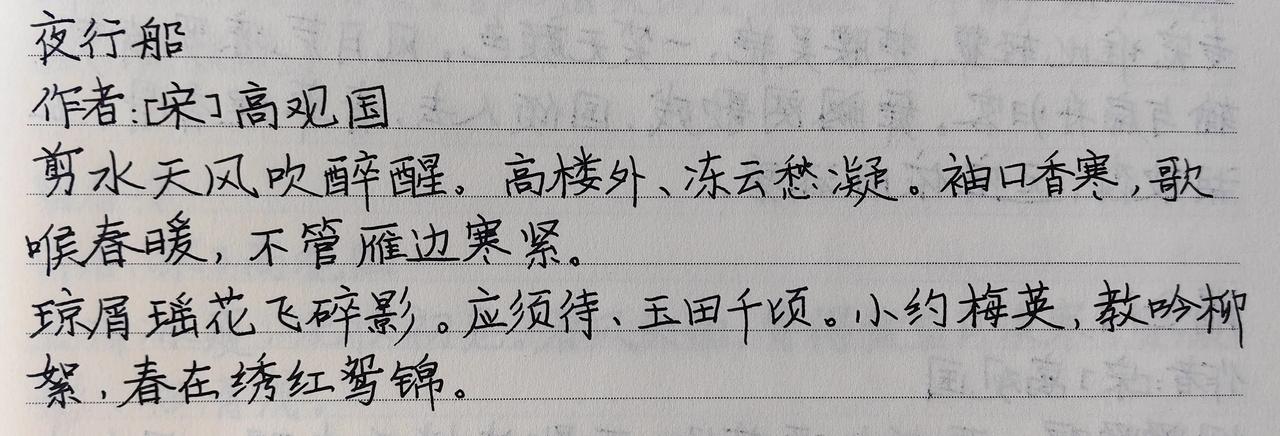 夜行船
作者:[宋]高观国
剪水天风吹醉醒。高楼外、冻云愁凝。袖口香寒,歌
喉春暖,不管雁边寒紧。
琼屑瑶花飞碎影。应须待、玉田千顷。小约梅英,教吟柳
絮,春在绣红鸳锦。